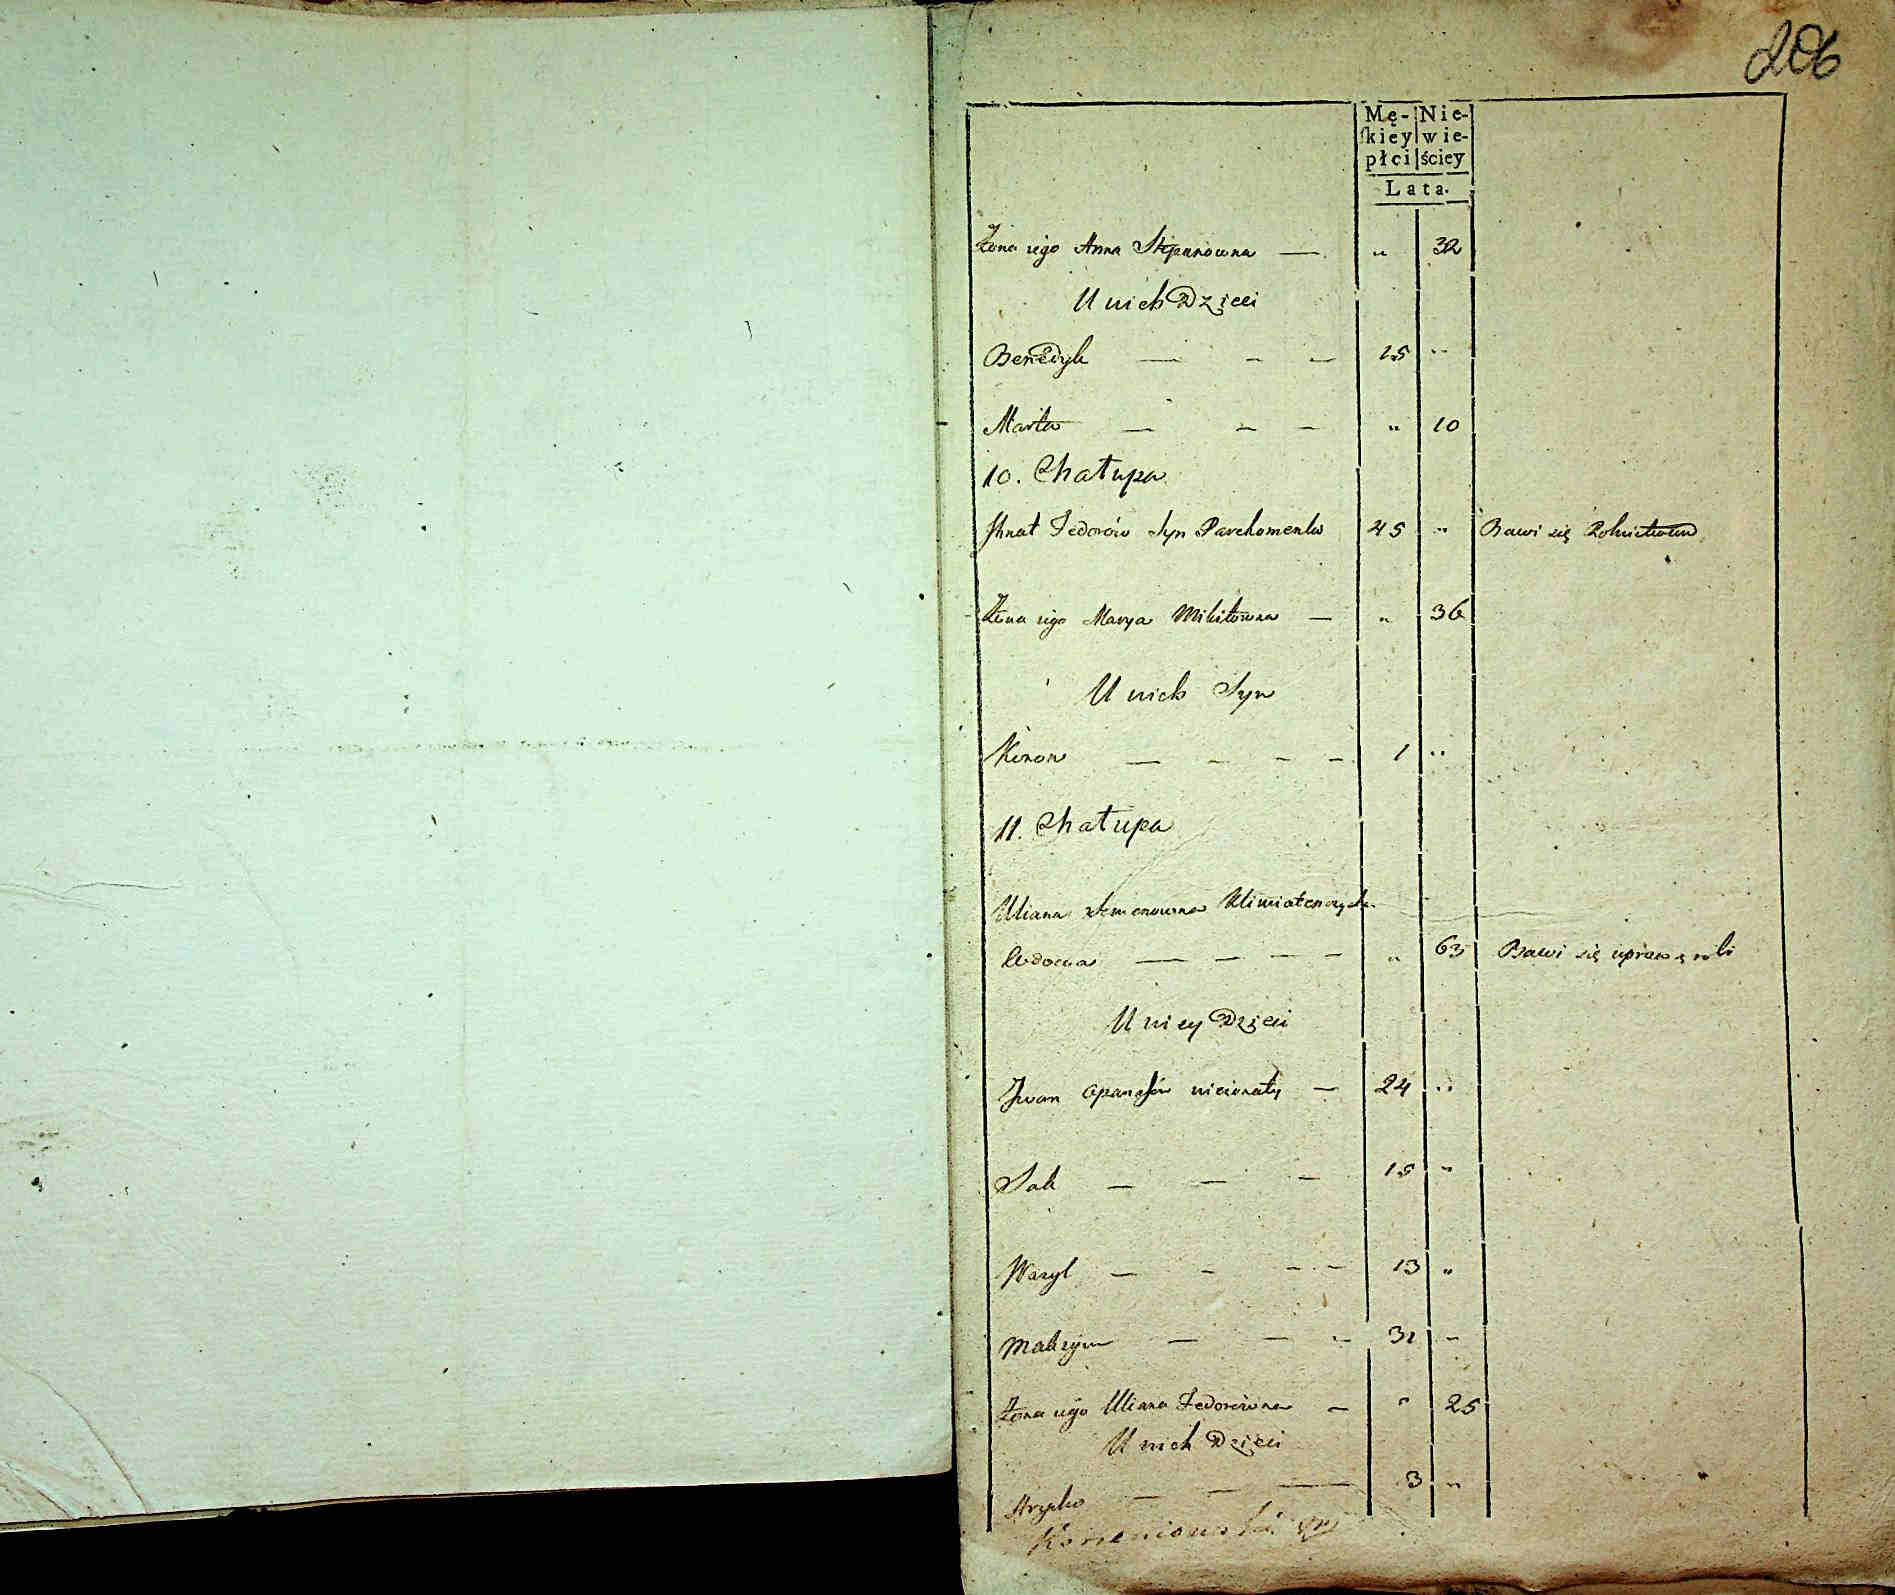 206
Mę- Nie-
skiey wie-
płci ściey
Lata.
Żona iego Anna Stepanowna — " 32
U nich Dzieci
Benedyk — — — 15 "
Marta — — — " 10
10. Chałupa
Ihnat Fedorów Syn Parchomenko 45 " Bawi się Rolnictwem
Żona iego Marya Mikitowna — " 36
U nich Syn
Konon — — — — 1 "
11. Chałupa
Uliana Semenowna
Wdowa — — — — " 63 Bawi się uprawą roli
U niey Dzieci
Iwan Apanasów nieżonaty — 24 "
Sak — — — 15 "
Wasyl — — — — 13 "
Maksym — — — 31 "
Żona iego Uliana Fedorówna — " 25
U nich Dzieci
Hryćko — — — 3 "